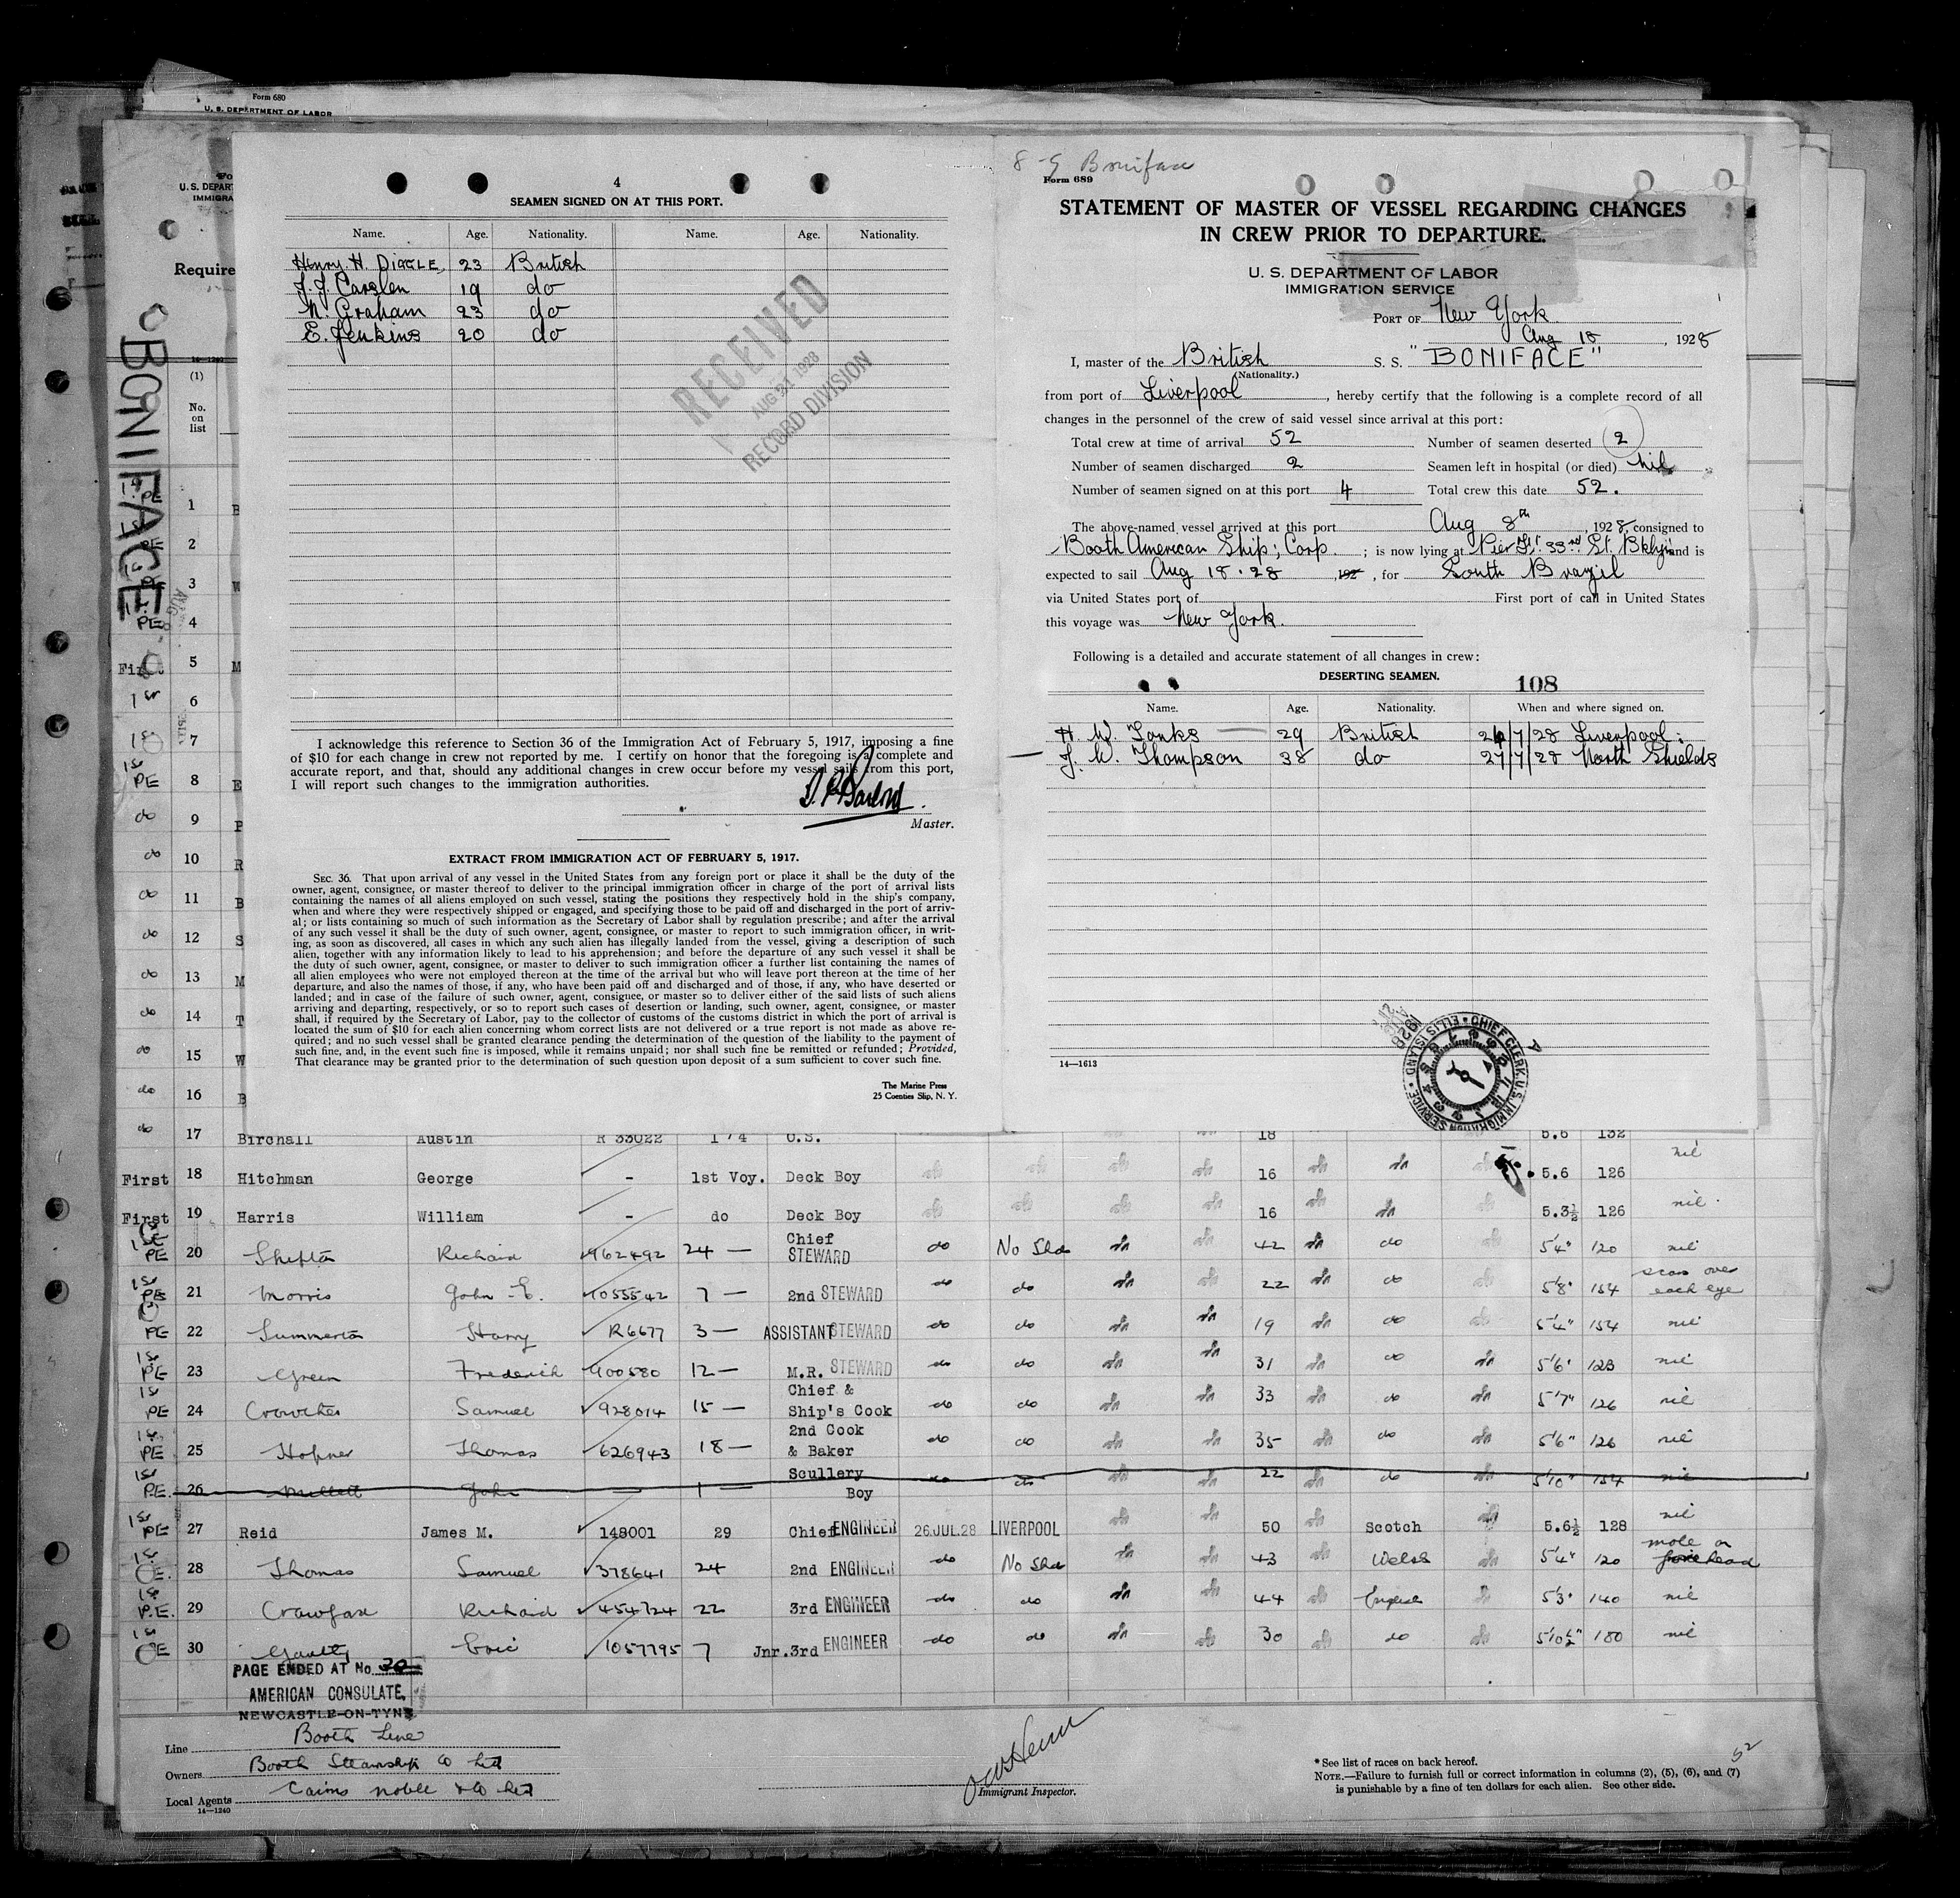 Form 680
U. S. DEPARTMENT OF LABOR
U. S. DEPAR
IMMIGRA
Require
BONIFACE
(1)
No.
on
list
4
SEAMEN SIGNED ON AT THIS PORT.
Name. Age. Nationality. Name. Age. Nationality.
Henry. H. DIGGLE, 23 British
J. J. Carslen 19 do
N. Graham 23 do
E. Jenkins 20 do
RECEIVED
AUG 21 1928
RECORD DIVISION
I acknowledge this reference to Section 36 of the Immigration Act of February 5, 1917, imposing a fine
of $10 for each change in crew not reported by me. I certify on honor that the foregoing is a complete and
accurate report, and that, should any additional changes in crew occur before my vessel sails from this port,
I will report such changes to the immigration authorities.
Master.
EXTRACT FROM IMMIGRATION ACT OF FEBRUARY 5, 1917.
SEC. 36. That upon arrival of any vessel in the United States from any foreign port or place it shall be the duty of the
owner, agent, consignee, or master thereof to deliver to the principal immigration officer in charge of the port of arrival lists
containing the names of all aliens employed on such vessel, stating the positions they respectively hold in the ship's company,
when and where they were respectively shipped or engaged, and specifying those to be paid off and discharged in the port of arriv-
al; or lists containing so much of such information as the Secretary of Labor shall by regulation prescribe; and after the arrival
of any such vessel it shall be the duty of such owner, agent, consignee, or master to report to such immigration officer, in writ-
ing, as soon as discovered, all cases in which any such alien has illegally landed from the vessel, giving a description of such
alien, together with any information likely to lead to his apprehension; and before the departure of any such vessel it shall be
the duty of such owner, agent, consignee, or master to deliver to such immigration officer a further list containing the names of
all alien employees who were not employed thereon at the time of the arrival but who will leave port thereon at the time of her
departure, and also the names of those, if any, who have been paid off and discharged and of those, if any, who have deserted or
landed; and in case of the failure of such owner, agent, consignee, or master so to deliver either of the said lists of such aliens
arriving and departing, respectively, or so to report such cases of desertion or landing, such owner, agent, consignee, or master
shall, if required by the Secretary of Labor, pay to the collector of customs of the customs district in which the port of arrival is
located the sum of $10 for each alien concerning whom correct lists are not delivered or a true report is not made as above re-
quired; and no such vessel shall be granted clearance pending the determination of the question of the liability to the payment of
such fine, and, in the event such fine is imposed, while it remains unpaid; nor shall such fine be remitted or refunded; Provided,
That clearance may be granted prior to the determination of such question upon deposit of a sum sufficient to cover such fine.
The Marine Press
25 Coenties Slip, N. Y.
Boniface
Form 689
STATEMENT OF MASTER OF VESSEL REGARDING CHANGES
IN CREW PRIOR TO DEPARTURE.
U. S. DEPARTMENT OF LABOR
IMMIGRATION SERVICE
PORT OF New York
Aug 18, 1928
I, master of the British S. S. "BONIFACE"
(Nationality.)
from port of Liverpool, hereby certify that the following is a complete record of all
changes in the personnel of the crew of said vessel since arrival at this port:
Total crew at time of arrival 52 Number of seamen deserted 2
Number of seamen discharged 2 Seamen left in hospital (or died) Nil
Number of seamen signed on at this port 4 Total crew this date 52.
The above-named vessel arrived at this port Aug 8th, 1928, consigned to
Booth American Ship; Corp. ; is now lying at Pier Ft. 33rd St. Bklyn and is
expected to sail Aug 18. 28 192 , for South Brazil
via United States port of First port of call in United States
this voyage was New York.
Following is a detailed and accurate statement of all changes in crew:
DESERTING SEAMEN. 108
Name. Age. Nationality. When and where signed on.
H. W. Tonks 29 British 26/7/28 Liverpool:
J. W. Thompson 38 do 27/7/28 North Shields
14—1613
CHIEF CLERK, U.S. IMMIGRATION SERVICE · ELLIS ISLAND
PE 1
PE 2
3
PE 4
5
1st 6
7
1st PE 8
do 9
do 10
do 11
do 12
do 13
do 14
do 15
do 16
do 17 Birchall Austin R 33022 O.S. 18 5.6 132 nil
First 18 Hitchman George - 1st Voy. Deck Boy 16 5.6 126 nil
First 19 Harris William - do Deck Boy 16 5.3½ 126 nil
PE 20 Shepton Richard 962492 24 — Chief STEWARD do No Shds 42 do 5'4" 120 nil
1st PE 21 Morris John E. 1055542 7 — 2nd STEWARD do do 22 do 5'8" 154 scar over each eye
PE 22 Summerton Harry R6677 3 — ASSISTANT STEWARD do do 19 do 5'4" 154 nil
1st PE 23 Green Frederick 900580 12 — M.R. STEWARD do do 31 do 5'6" 123 nil
1st PE 24 Crowther Samuel 928014 15 — Chief & Ship's Cook do do 33 do 5'7" 126 nil
1st PE 25 Hopner Thomas 626943 18 — 2nd Cook & Baker do do 35 do 5'6" 126 nil
1st PE. 26 Millett John — 1 — Scullery Boy do do 22 do 5'10" 154 nil
1st PE 27 Reid James M. 148001 29 Chief ENGINEER 26 JUL. 28 LIVERPOOL 50 Scotch 5.6½ 128 nil
1st E. 28 Thomas Samuel 378641 24 2nd ENGINEER do No Shds 43 Welsh 5'4" 120 mole on forehead
1st P.E. 29 Crawford Richard 454724 22 3rd ENGINEER do do 44 English 5'3" 140 nil
1st E 30 Eric 1057795 7 Jnr.3rd ENGINEER do do 30 do 5'10½" 180 nil
PAGE ENDED AT No. 30
AMERICAN CONSULATE,
NEWCASTLE-ON-TYNE
Line Booth Line
Owners Booth Steamship Co Ltd
Local Agents Cairns Noble & Co Ltd
14—1240
Immigrant Inspector.
* See list of races on back hereof.
NOTE.—Failure to furnish full or correct information in columns (2), (5), (6), and (7)
is punishable by a fine of ten dollars for each alien. See other side.
52